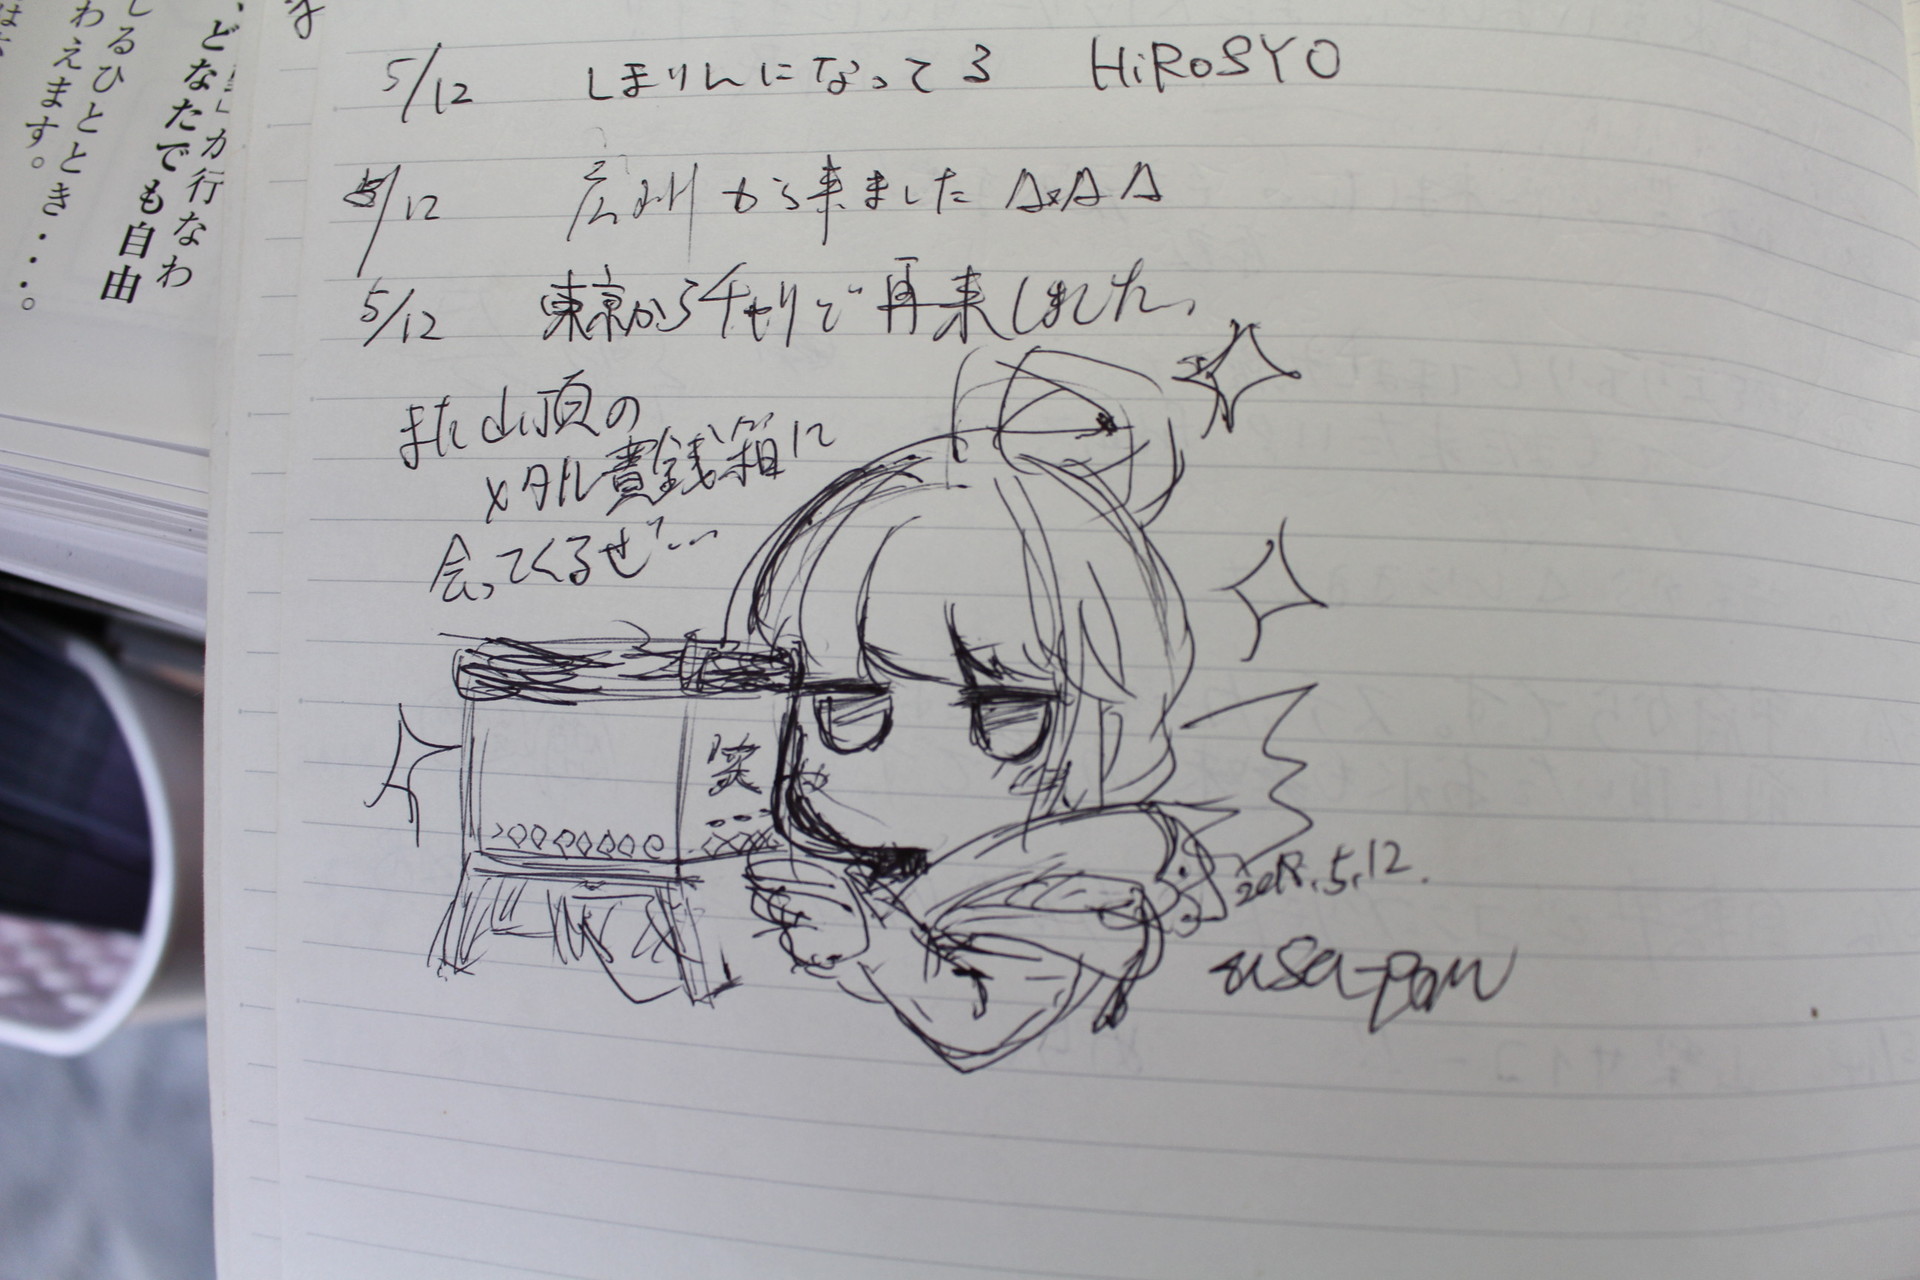 5/12 しまりんになってる HiROSYO
5/12 広州から来ました
5/12 東京からチャリで再来しました。
また山頂の
メタル賽銭箱に
会ってくるぜ…
5.12.
usa-pon
どなたでも自由
が行なわ
るひととき・・・。
わえます。